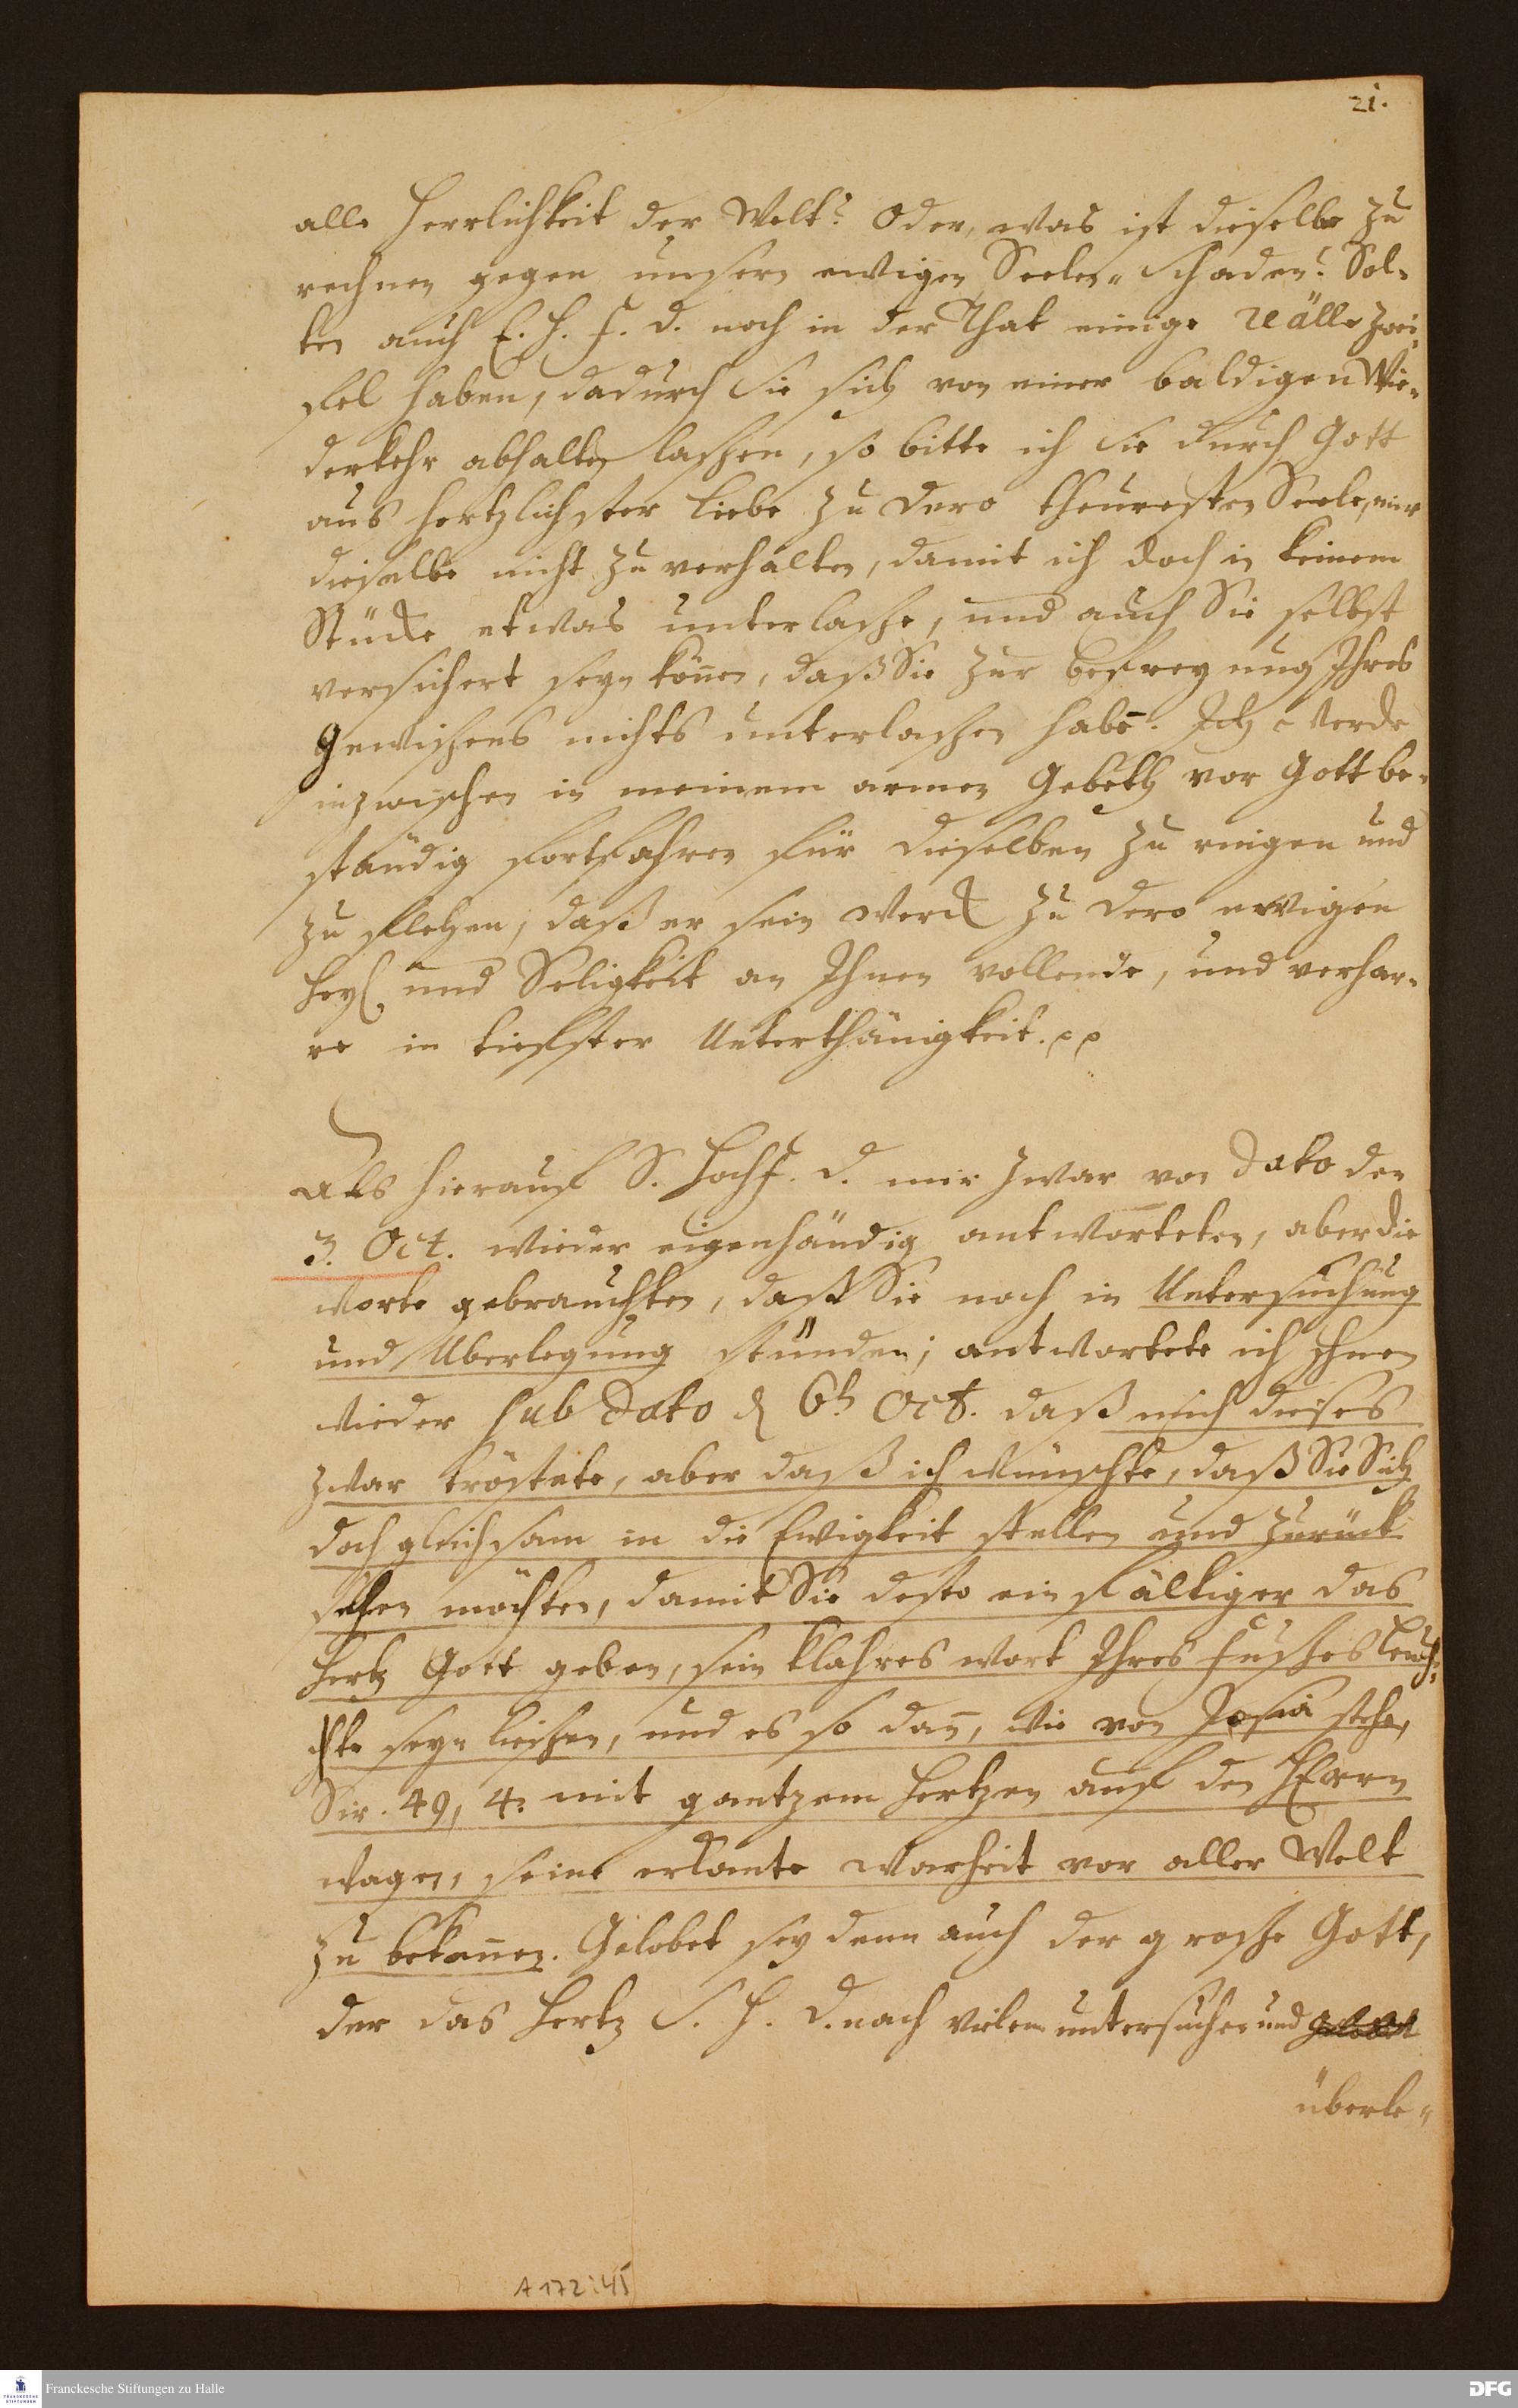 21.
alle Herrlichkeit der Welt? Oder, was ist dieselbe zu
rechnen gegen unsern ewigen Seelen-Schaden? Sol-
ten auch E. H. F. D. noch in der That einige reälle Zwei-
fel haben, dadurch Sie sich von einer baldigen Wie-
derkehr abhalten laßen, so bitte ich Sie durch Gott
aus hertzlichster Liebe zu Dero theuresten Seele, mir
dieselbe nicht zu verhalten, damit ich doch in keinem
Stücke etwas unterlaße, und auch Sie selbst
versichert seyn könen, daß Sie zur Befreyung Ihres
Gewißens nichts unterlaßen habē. Ich werde
inzwischen in meinem armen Gebeth vor Gott be-
ständig fortfahren für dieselben zu ringen und
zu flehen, daß er sein Werck zu Dero ewigen
Heyl und Seligkeit an Ihnen vollende, und verhar-
re in tiefster Unterthänigkeit. pp
Als hierauf S. Hochf. D. mir zwar von dato den
3. Oct. wieder eigenhändig antworteten, aber die
Worte gebrauchten, daß Sie noch in Untersuchung
und Uberlegung stünden; antwortete ich Ihnen
wieder sub dato d 6t Oct. daß mich dieses
zwar tröstete, aber daß ich wünschte, daß Sie Sich
doch gleichsam in die Ewigkeit stellen und zurück
sehen möchten, damit Sie desto einfältiger das
Hertz Gott geben, sein klahres Wort Ihres Fußes Leuch-
te seyn ließen, und es so dañ, wie von Josia stehe,
Sir. 49, 4. mit gantzem Hertzen auf den HErrn
wagen, seine erkante Warheit vor aller Welt
zu bekennen. Gelobet sey denn auch der große Gott,
der das Hertz S. H. D. nach vielem untersuchen und
überle-
A 172:45
Franckesche Stiftungen zu Halle
FRANCKESCHE STIFTUNGEN
DFG